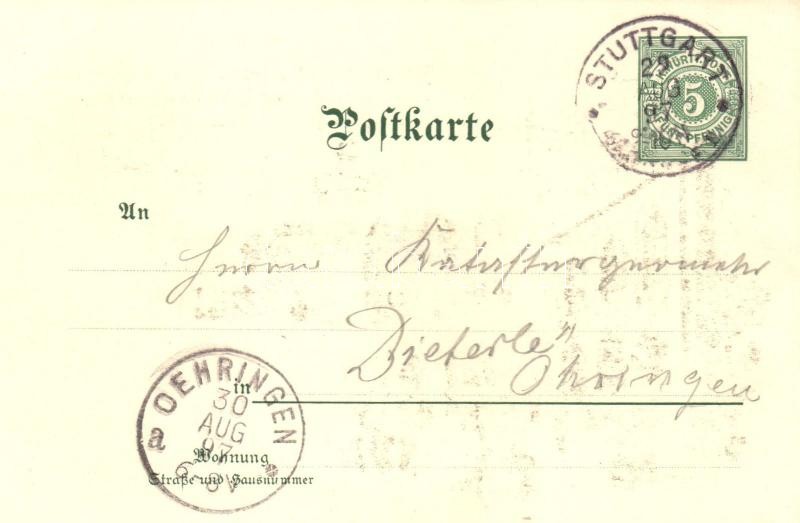 STUTTGART
29
AUG
97
K.WÜRTT.POST
5
FÜNF PFENNIG
Postkarte
An
Herrn Katastergeometer
Dieterle
Öhringen
OEHRINGEN
30
AUG
97
6-8V
a
in
Wohnung
Straße und Hausnummer